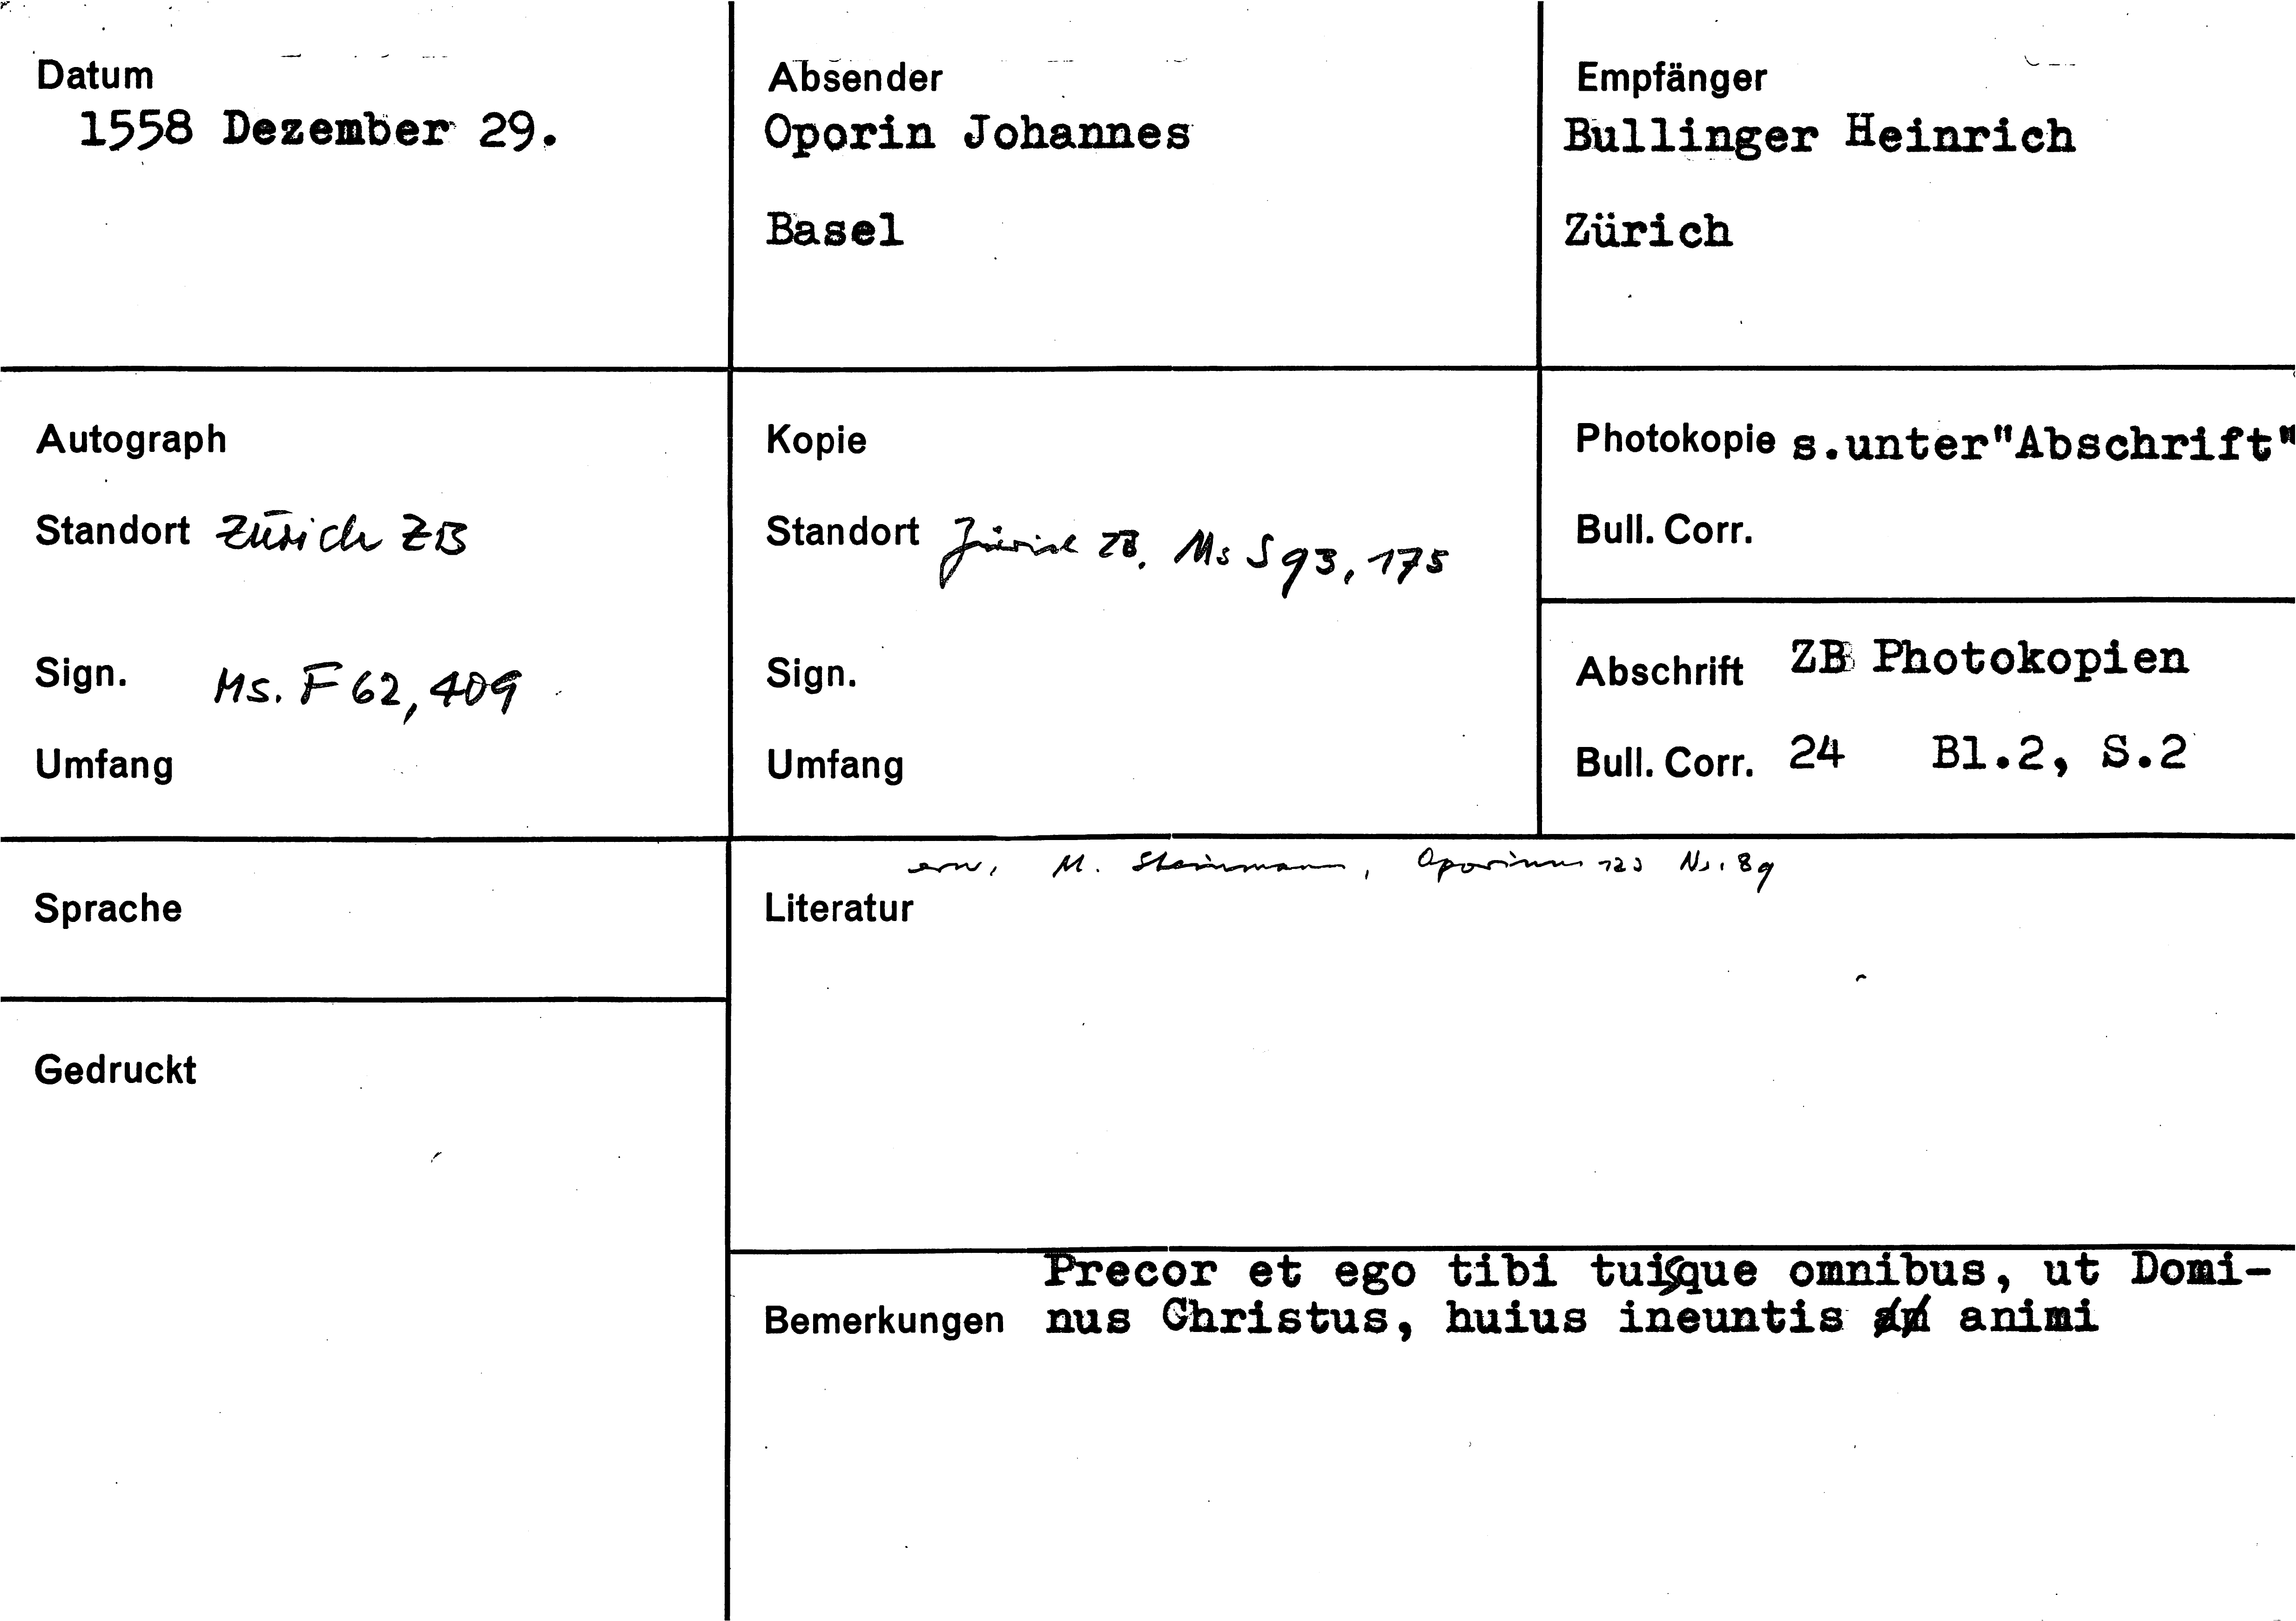 Datum
1558 Dezember 29.
Absender
Oporin Johannes
Basel
Empfänger
Bullinger Heinrich
Zürich
Autograph
Standort Zürich ZB
Sign. Ms. F 62, 409
Umfang
Kopie
Standort Zürich ZB, Ms S 93, 175
Sign.
Umfang
Photokopie s.unter"Abschrift"
Bull. Corr.
Abschrift ZB Photokopien
Bull. Corr. 24 Bl.2, S.2
Sprache
Gedruckt
erw. M. Steinmann, Oporinus 123 Nr. 89
Literatur
Precor et ego tibi tuisque omnibus, ut Domi-
Bemerkungen nus Christus, huius ineuntis animi